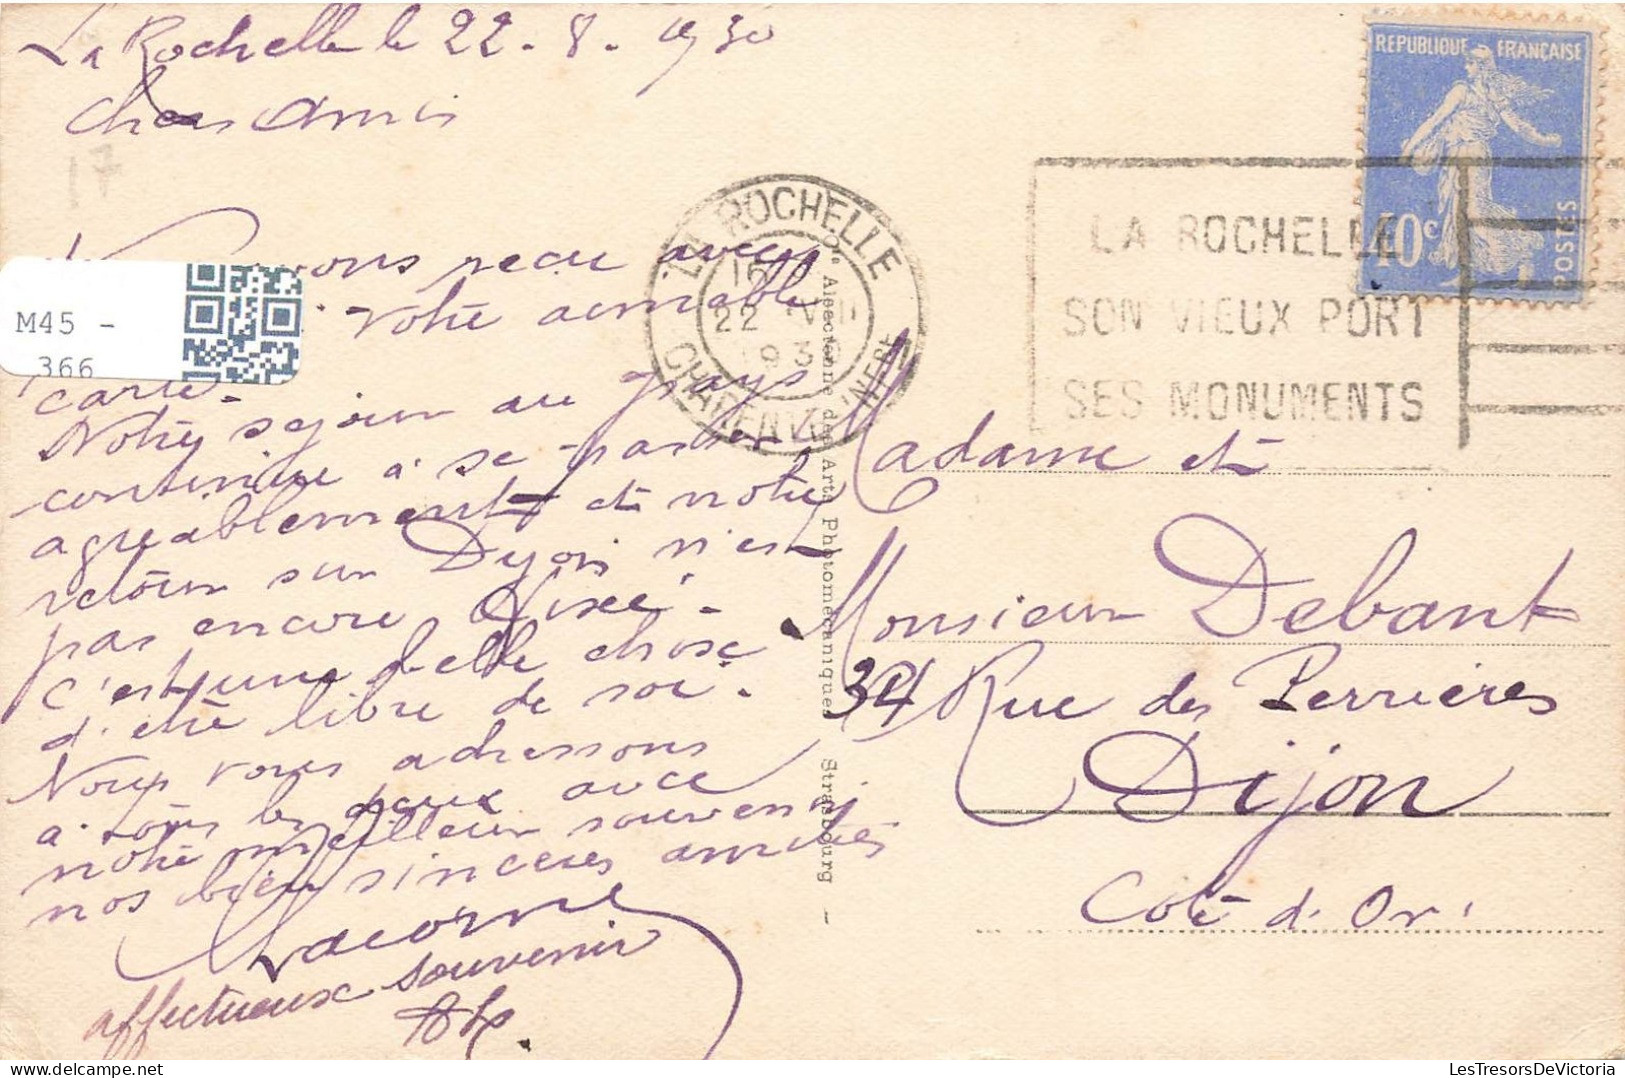 La Rochelle le 22-8-1930
Chers Amis
avons reçu avec
votre aimable
carte.
Notre séjour au pays
continue à se passer
agréablement et notre
retour sur Dijon n'est
pas encore fixé.
C'est une belle chose
d'être libre de soi.
Nous vous adressons
à tous les deux avec
notre meilleur souvenir
nos bien sincères amitiés
Lacorne
affectueux souvenir
M45 -
366
17
LA ROCHELLE
22 VIII
1930
CHARENTE INFRE
Cie Alsacienne des Arts Photomécaniques Strasbourg -
REPUBLIQUE FRANÇAISE
40c
POSTES
LA ROCHELLE
SON VIEUX PORT
SES MONUMENTS
Madame et
Monsieur Debant
34 Rue des Perrières
Dijon
Côte d'Or
LesTresorsDeVictoria